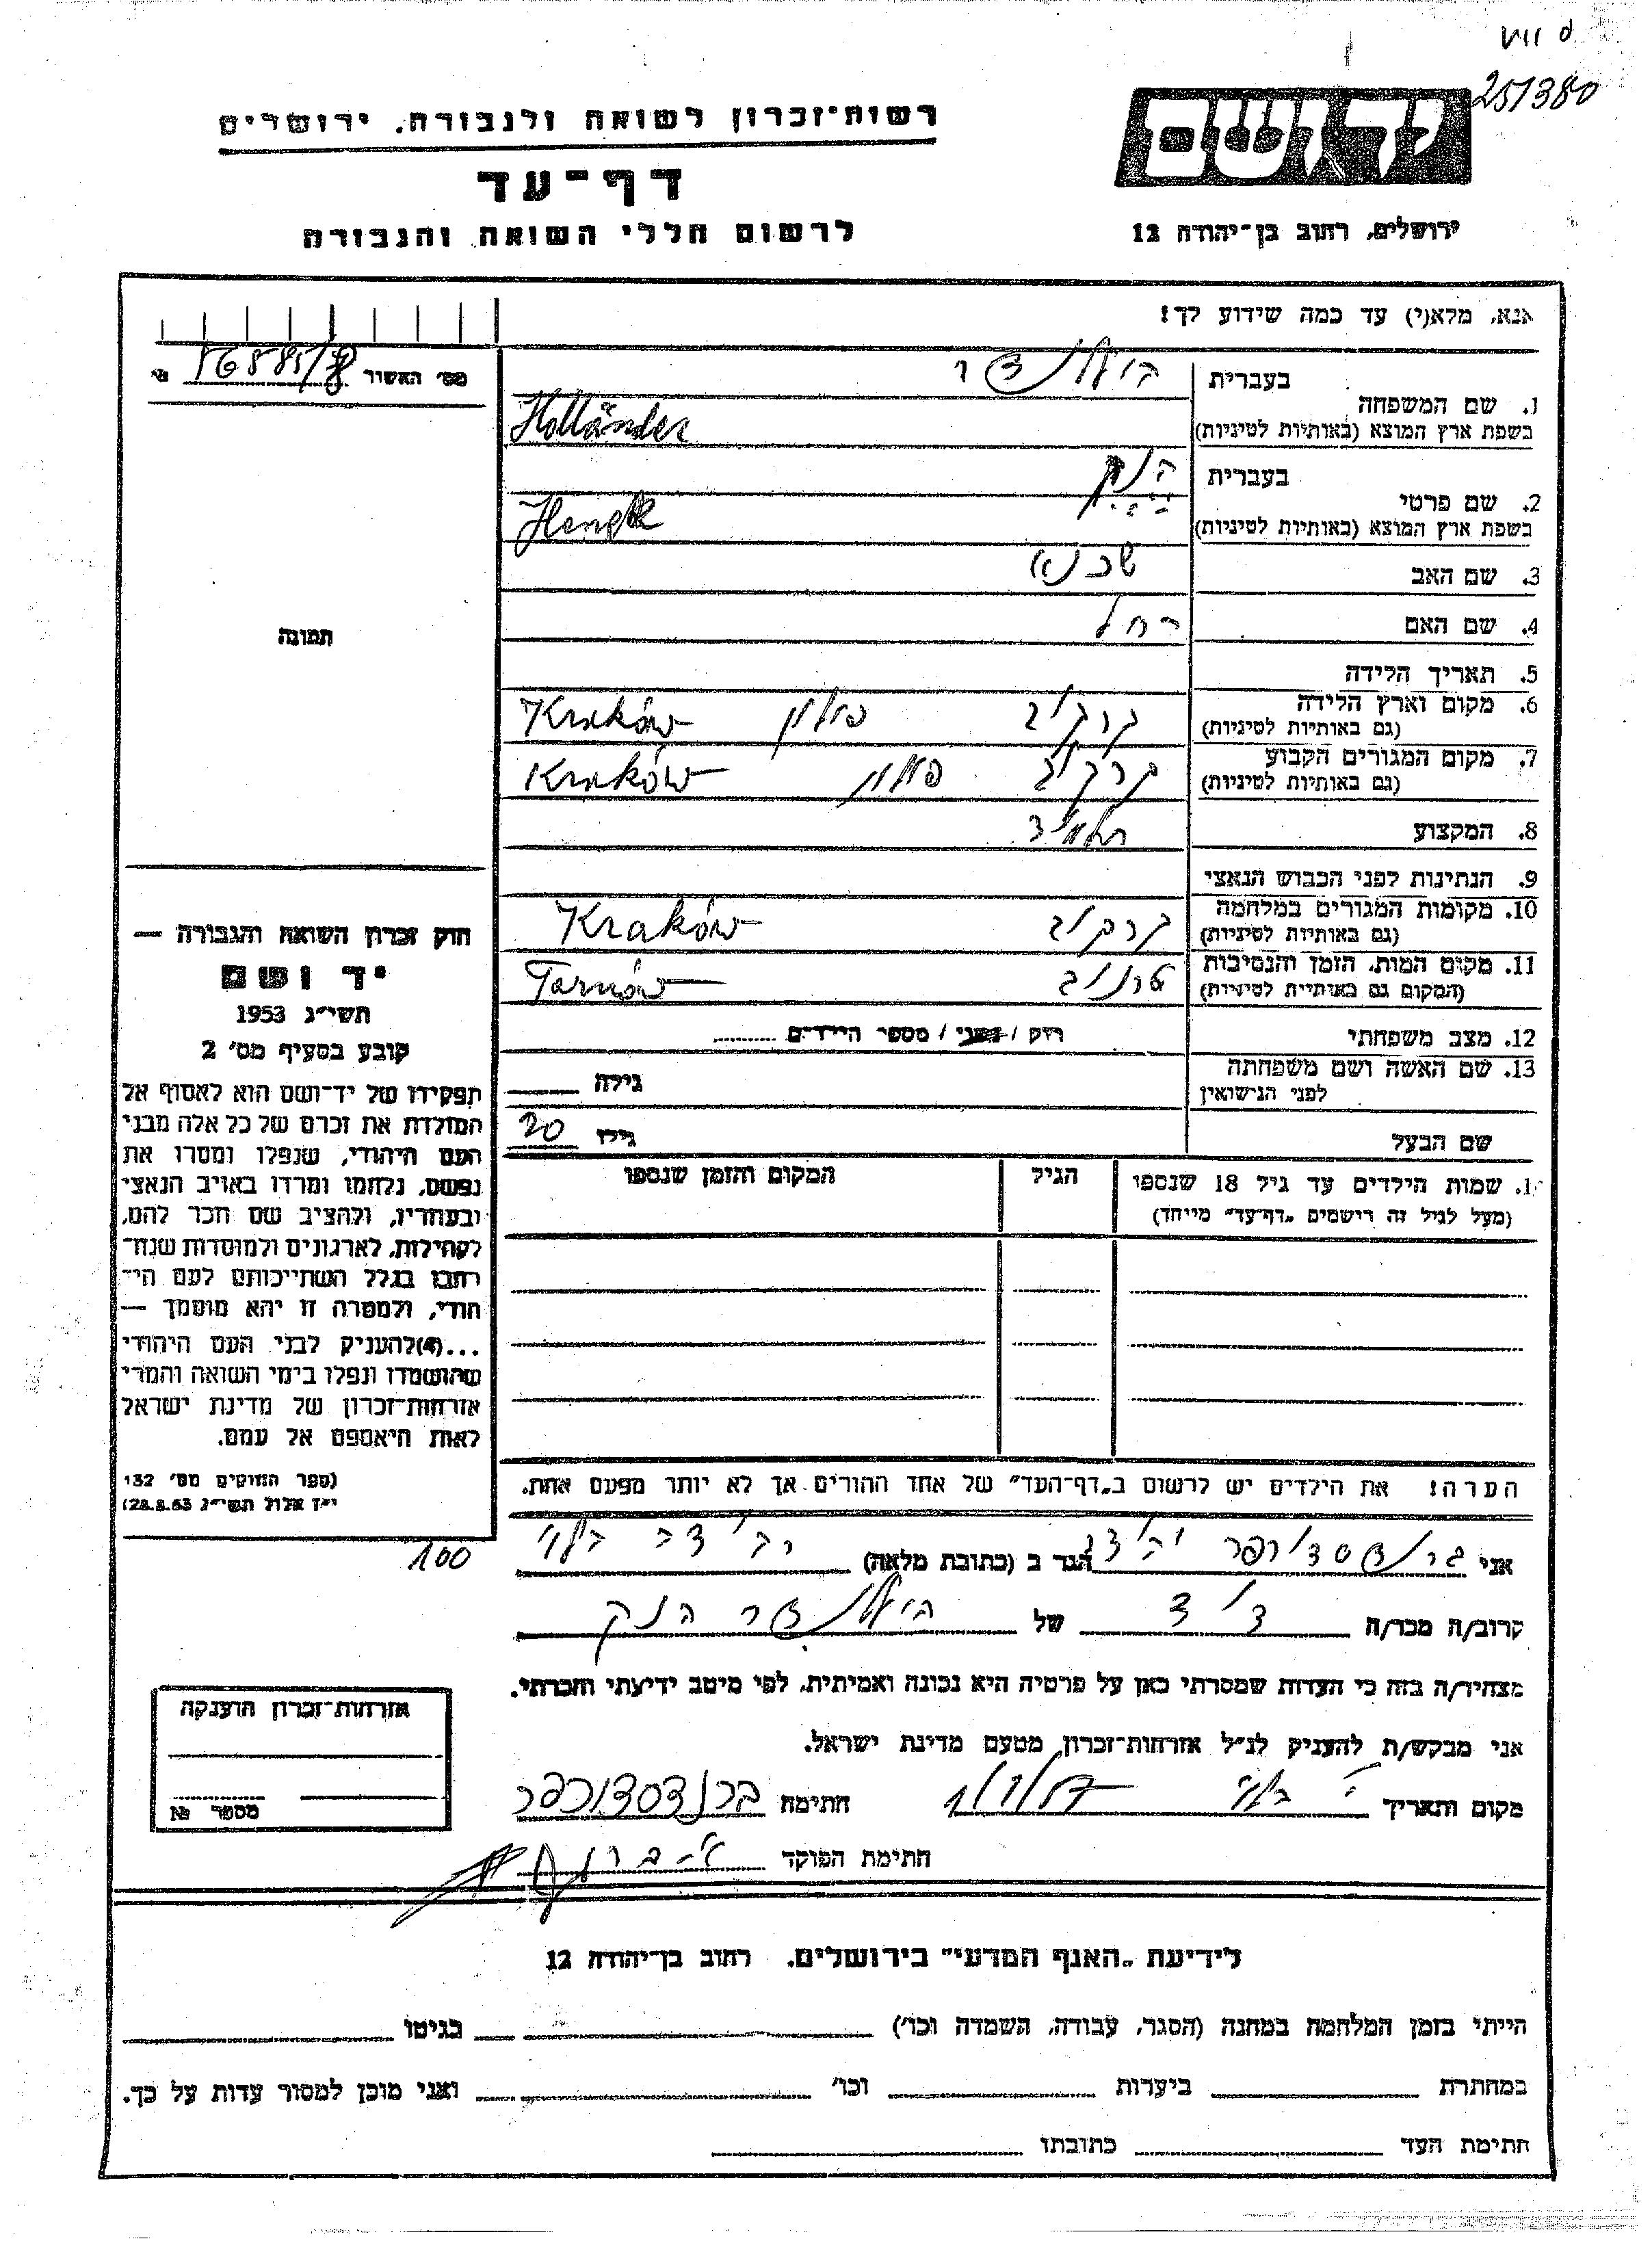 251380
רשות־זכרון לשואה ולגבורה, ירושלים
דף־עד
לרשום חללי השואה והגבורה
ירושלים, רחוב בן־יהודה 12
אנא, מלא(י) עד כמה שידוע לך!
מס׳ האשור
בעברית הולנדר
1. שם המשפחה
בשפת ארץ המוצא (באותיות לטיניות) Holländer
בעברית הנק
2. שם פרטי
בשפת ארץ המוצא (באותיות לטיניות) Henek
3. שם האב שכנא
4. שם האם רחל
5. תאריך הלידה
6. מקום וארץ הלידה קרקוב פולין Kraków
(גם באותיות לטיניות)
7. מקום המגורים הקבוע קרקוב פולין Kraków
(גם באותיות לטיניות)
8. המקצוע תלמיד
9. הנתינות לפני הכבוש הנאצי
10. מקומות המגורים במלחמה קרקוב Kraków
(גם באותיות לטיניות)
11. מקום המות, הזמן והנסיבות טרנוב Tarnów
(המקום גם באותיות לטיניות)
12. מצב משפחתי רווק / נשוי / מספר הילדים
13. שם האשה ושם משפחתה גילה
לפני הנישואין
שם הבעל גילו 20
שמות הילדים עד גיל 18 שנספו הגיל המקום והזמן שנספו
(מעל לגיל זה רישמים „דף־עד” מייחד)
הערה! את הילדים יש לרשום ב„דף־העד” של אחד ההורים אך לא יותר מפעם אחת.
תמונה
חוק זכרון השואה והגבורה —
יד ושם
תשי״ג 1953
קובע בסעיף מס׳ 2
תפקידו של יד־ושם הוא לאסוף אל
המולדת את זכרם של כל אלה מבני
העם היהודי, שנפלו ומסרו את
נפשם, נלחמו ומרדו באויב הנאצי
ובעוזריו, ולהציב שם וזכר להם,
לקהילות, לארגונים ולמוסדות שנח־
רבו בגלל השתייכותם לעם הי־
הודי, ולמטרה זו יהא מוסמך —
...(4) להעניק לבני העם היהודי
שהושמדו ונפלו בימי השואה והמרי
אזרחות־זכרון של מדינת ישראל
לאות היאספם אל עמם.
(ספר החוקים מס׳ 132
י״ז אלול תשי״ג 28.8.53)
100
אני ברנדסדורפר יהודה הגר ב (כתובת מלאה)
קרוב/ה מכר/ה דוד של הולנדר הנק
מצהיר/ה בזה כי העדות שמסרתי כאן על פרטיה היא נכונה ואמיתית, לפי מיטב ידיעתי והכרתי.
אני מבקש/ת להעניק לנ״ל אזרחות־זכרון מטעם מדינת ישראל.
מקום ותאריך חתימה ברנדסדורפר
חתימת הפוקד
אזרחות־זכרון הוענקה
מספר №
לידיעת „האגף המדעי” בירושלים, רחוב בן־יהודה 12
הייתי בזמן המלחמה במחנה (הסגר, עבודה, השמדה וכו׳) בגיטו
במחתרת ביערות וכו׳ ואני מוכן למסור עדות על כך.
חתימת העד כתובתו